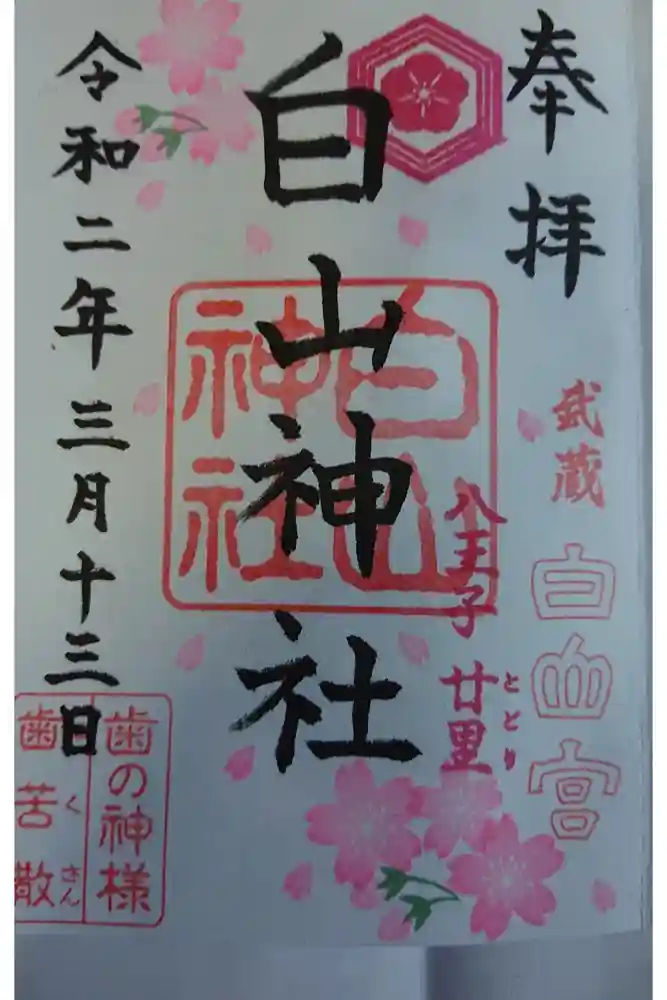 奉拝
武蔵
白山宮
八王子 廿里
とどり
白山神社
白山
神社
令和二年三月十三日
歯の神様
歯苦散
くさん